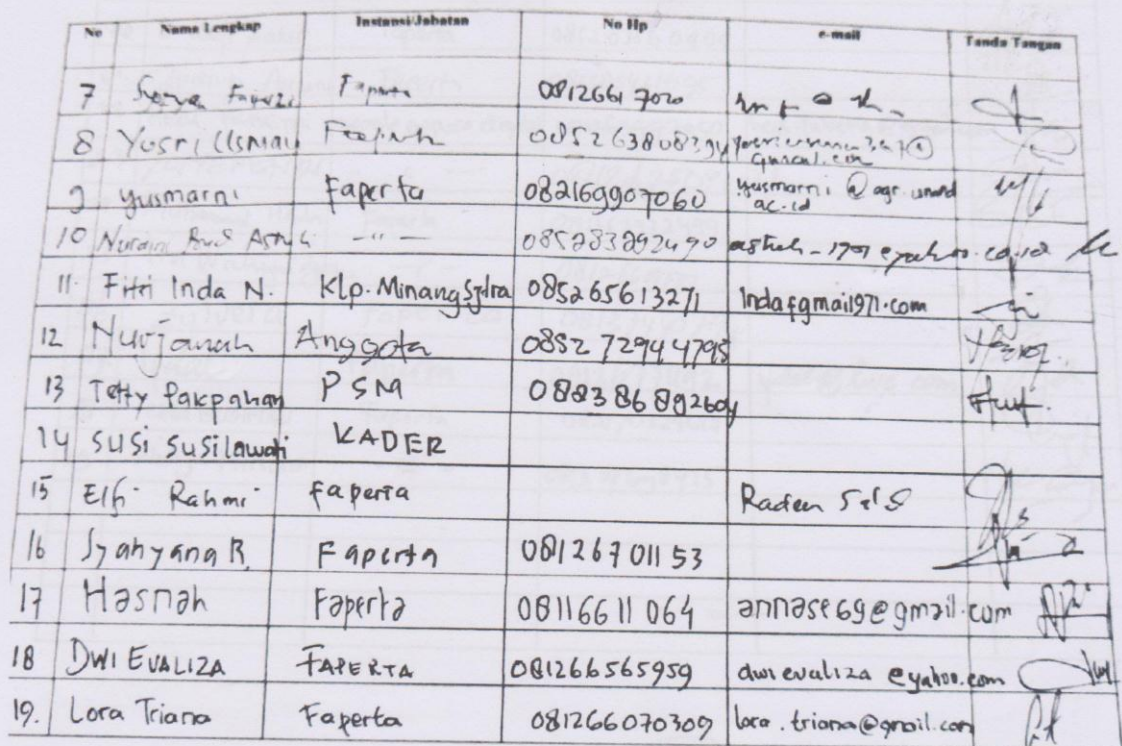 No Nama Lengkap Instansi/Jabatan No Hp e-mail Tanda Tangan
7 Faperta 08126617020
8 Yusri Usman 085263808394
gmail.com
9 yusmarni Faperta 082169907060 yusmarni @ agr.unand
ac.id
10 -"- 085283292490
11. Fitri Inda N. Klp. Minang 085265613271 Indafgmail971.com
12 Nurjanah Anggota 0852 7294 4795
13 Tetty Pakpahan PSM
14 SUSI SUSilawati KADER
15 Elfi Rahmi Faperta Raden
16 Syahyana R. Faperta 081267 011 53
17 Hasnah Faperta 0811 66 11 064 annase69@gmail.com
18 DWI EVALIZA FAPERTA 081266565959 dwievaliza @yahoo.com
19. Lora Triana Faperta 081266070309 lora.triana@gmail.com